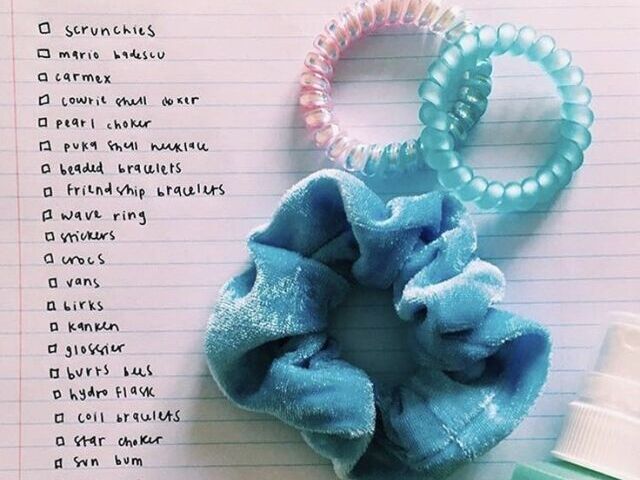 scrunchies
mario badescu
carmex
cowrie shell coker
pearl choker
puka shell necklace
beaded bracelets
friendship bracelets
wave ring
stickers
crocs
vans
birks
kanken
glossier
burts bees
hydro flask
coil bracelets
star choker
sun bum